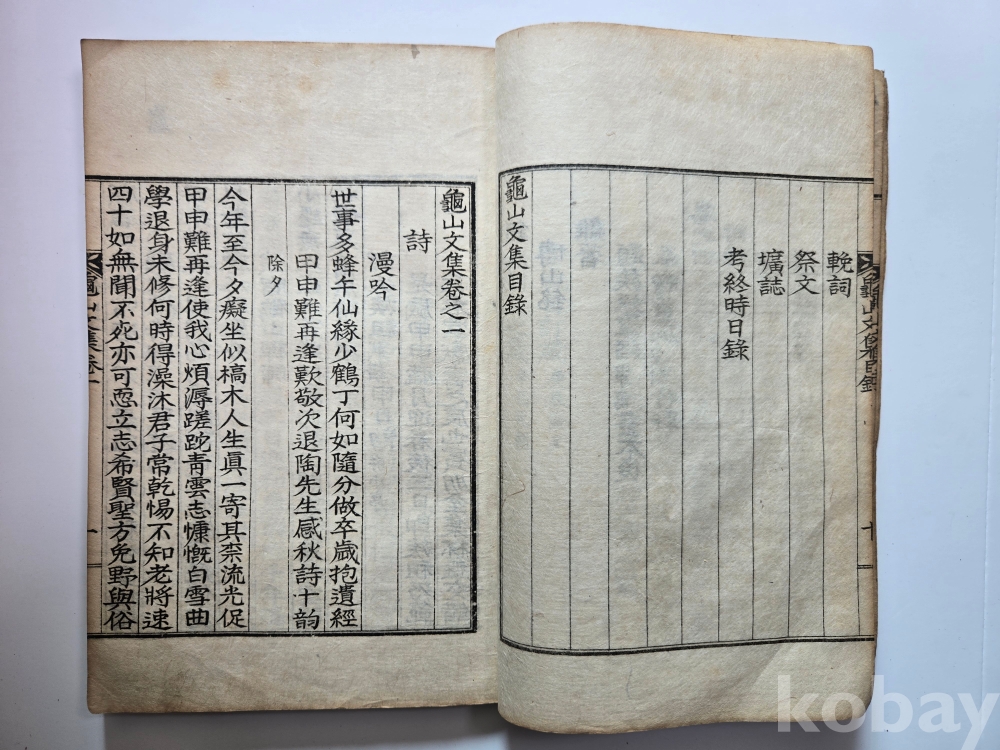 輓詞
祭文
壙誌
考終時日錄
龜山文集目錄
龜山文集目錄
十
龜山文集卷之一
詩
漫吟
世事多蜂午仙緣少鶴丁何如隨分做卒歲抱遺經
甲申難再逢歎敬次退陶先生感秋詩十韵
除夕
今年至今夕癡坐似槁木人生眞一寄其柰流光促
甲申難再逢使我心煩溽蹉跎靑雲志慷慨白雪曲
學退身未修何時得澡沐君子常乾惕不知老將速
四十如無聞不死亦可惡立志希賢聖方免野與俗
龜山文集卷一
一
kobay